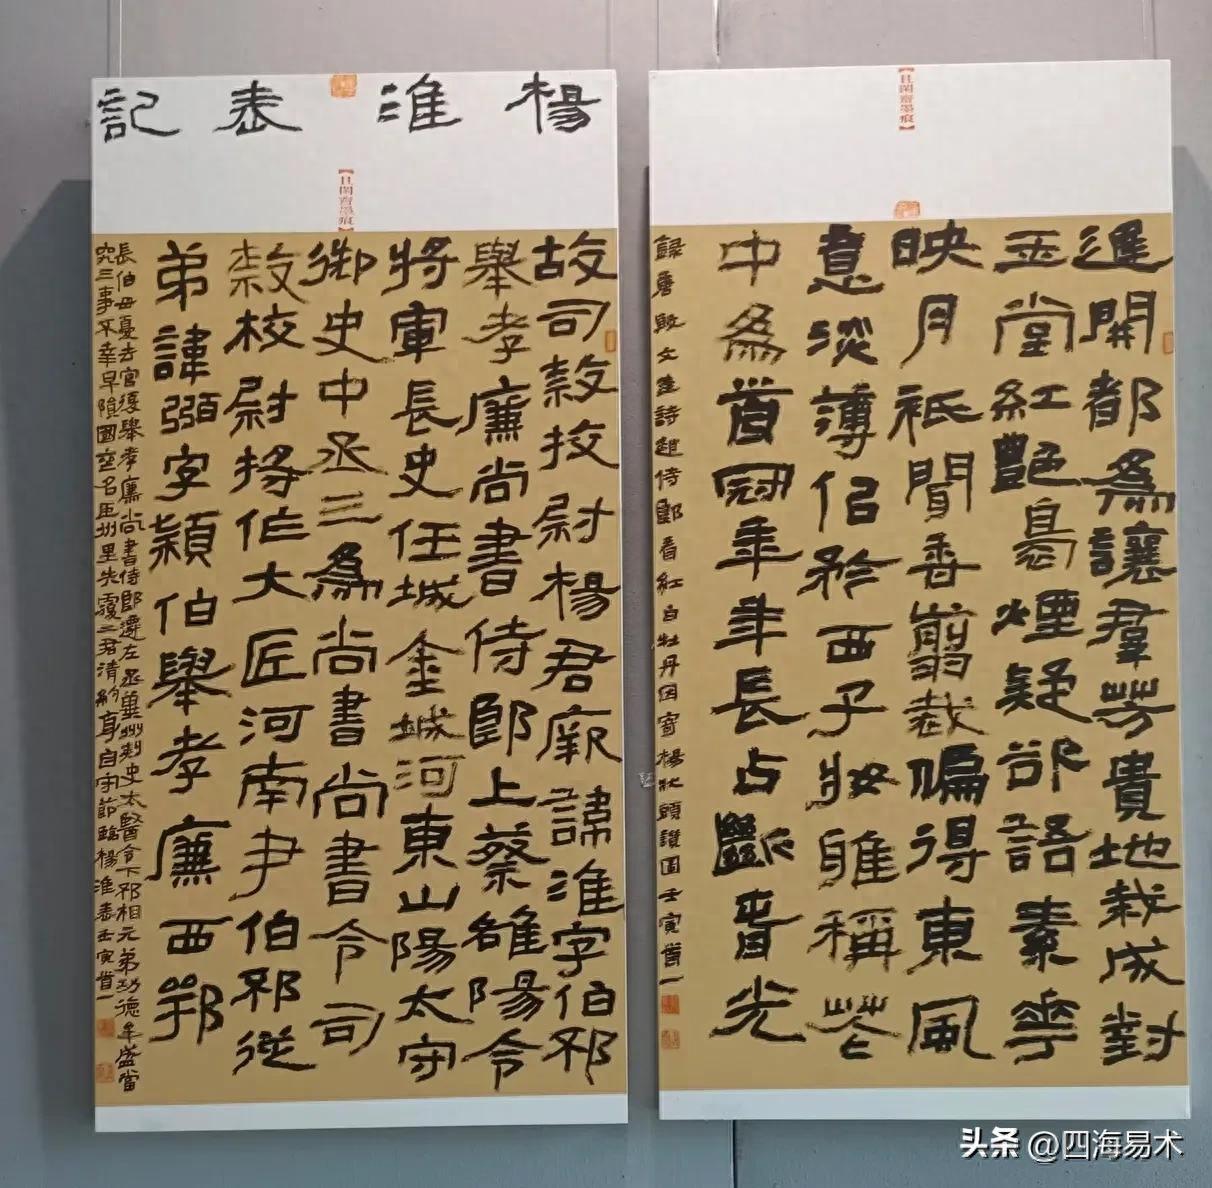 楊淮表記
【且閑齋墨痕】
故司隸校尉楊君厥諱淮字伯邳
舉孝廉尚書侍郎上蔡雒陽令
將軍長史任城金城河東山陽太守
御史中丞三為尚書尚書令司
隸校尉將作大匠河南尹伯邳從
弟諱弼字穎伯舉孝廉西鄂
長伯母憂去官復舉孝廉尚書侍郎遷左丞冀州刺史太醫令下邳相元弟功德牟盛當
究三事不幸早隕國喪名臣州里失覆二君清約身自守節臨楊淮表壬寅首一
【且閑齋墨痕】
遲開都為讓羣芳貴地栽成對
玉堂紅艷裊煙疑欲語素華
映月祇聞香剪裁偏得東風
意淡薄似矜西子妝雖稱花
中為首冠年年長占斷春光
錄唐殷文圭詩趙侍郎看紅白牡丹因寄楊狀頭讚圖壬寅首一
头条 @四海易术